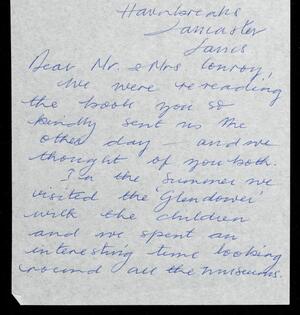 Havnbreaks
Lancaster
Lancs
Dear Mr. & Mrs Conroy,
We were re-reading
the book you so
kindly sent us the
other day – and we
thought of you both.
In the Summer we
visited the 'Glendower'
with the children
and we spent an
interesting time looking
round all the museums.